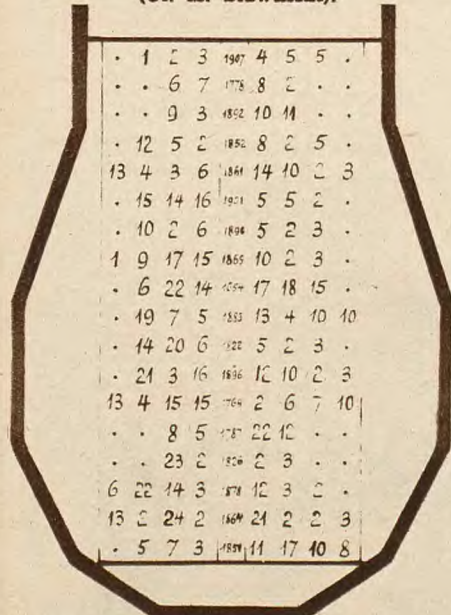 . 1 2 3 1907 4 5 5 .
. . 6 7 1778 8 2 . .
. . 9 3 1892 10 11 . .
. 12 5 2 1852 8 2 5 .
13 4 3 6 1861 14 10 2 3
. 15 14 16 1921 5 5 2 .
. 10 2 6 1894 5 2 3 .
1 9 17 15 1865 10 2 3 .
. 6 22 14 17 18 15 .
. 19 7 5 13 4 10 10
. 14 20 6 5 2 3 .
. 21 3 16 1896 12 10 2 3
13 4 15 15 1769 2 6 7 10
. . 8 5 1787 22 12 . .
. . 23 2 1826 2 3 . .
6 22 14 3 1878 12 3 2 .
13 2 24 2 1864 21 2 2 3
. 5 7 3 1854 11 17 10 8